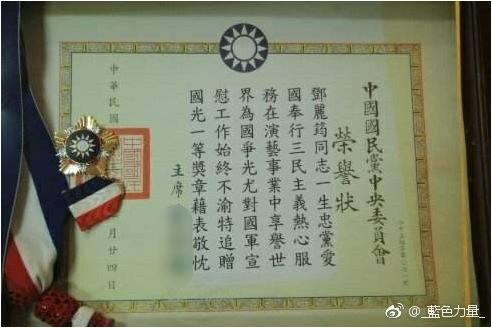 中國國民黨中央委員會
榮譽狀
鄧麗筠同志一生忠黨愛
國奉行三民主義熱心服
務在演藝事業中享譽世
界為國爭光尤對國軍宣
慰工作始終不渝特追贈
國光一等獎章藉表敬忱
主席
中華民國
月廿四日
@_藍色力量_